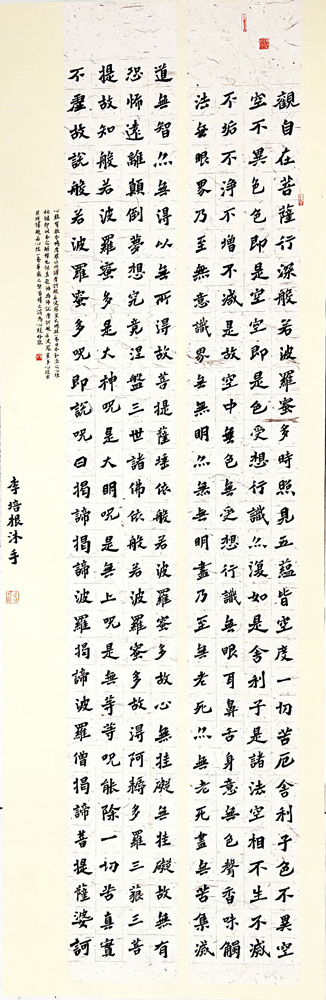 觀自在菩薩行深般若波羅蜜多時照見五蘊皆空度一切苦厄舍利子色不異空
空不異色色即是空空即是色受想行識亦復如是舍利子是諸法空相不生不滅
不垢不淨不增不減是故空中無色無受想行識無眼耳鼻舌身意無色聲香味觸
法無眼界乃至無意識界無無明亦無無明盡乃至無老死亦無老死盡無苦集滅
道無智亦無得以無所得故菩提薩埵依般若波羅蜜多故心無挂礙無挂礙故無有
恐怖遠離顛倒夢想究竟涅盤三世諸佛依般若波羅蜜多故得阿耨多羅三藐三菩
提故知般若波羅蜜多是大神呪是大明呪是無上呪是無等等呪能除一切苦真實
不虛故說般若波羅蜜多呪即說呪曰揭諦揭諦波羅揭諦波羅僧揭諦菩提薩婆訶
李培根沐手